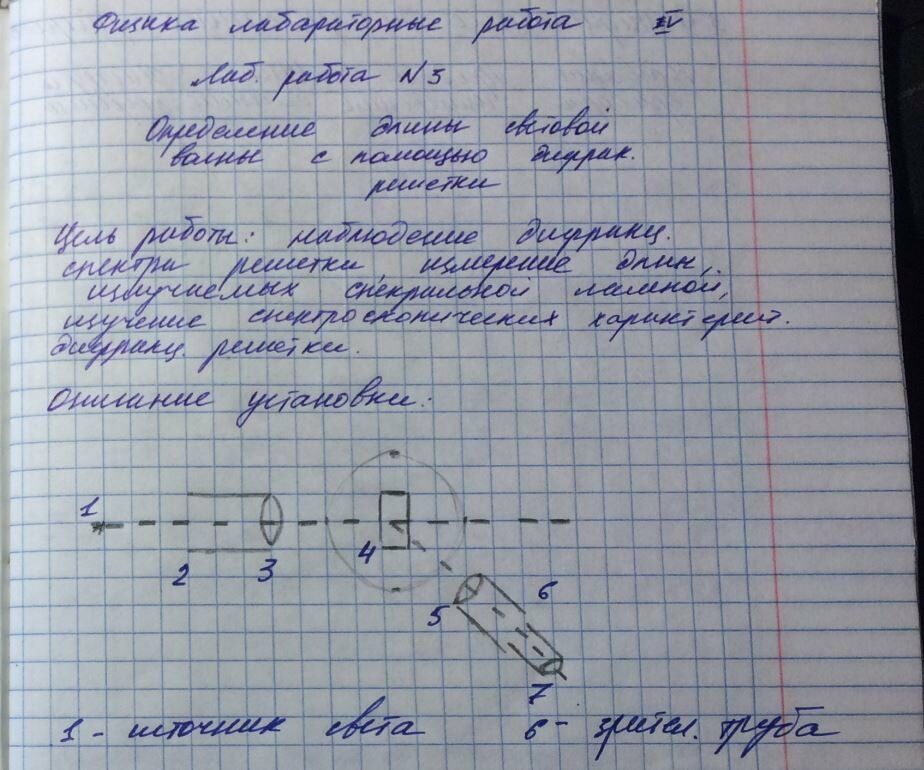 Физика лабараторные работа IV
Лаб. работа N 3
Определение длины световой
волны с помощью дифрак.
решетки
Цель работы: наблюдение дифракц.
спектра решетки, измерение длин,
излучаемых спекральной лампой,
изучение спектроскопических характерист.
дифракц. решетки.
Описание установки:
1
2 3 4 5 6
7
1 - источник света 6 - зрител. труба